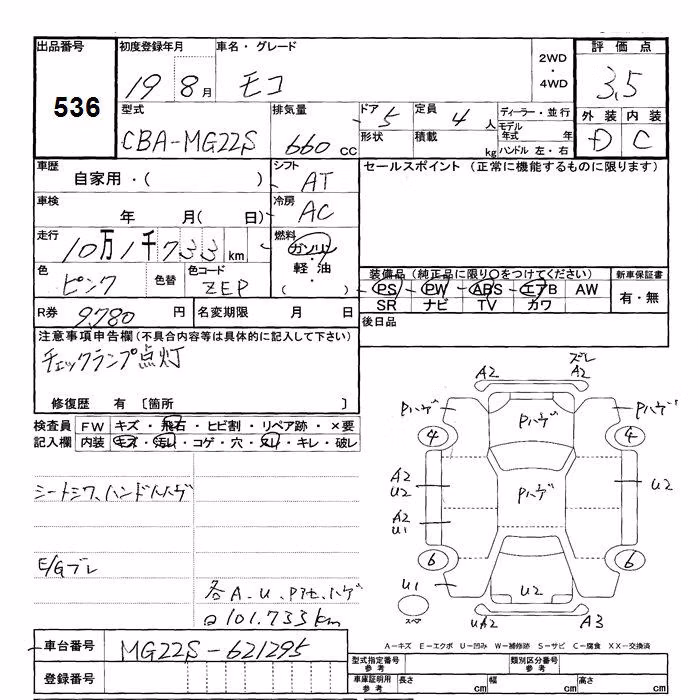 出品番号 初度登録年月 車名・グレード 評価点
536 19 8月 モコ 2WD・4WD 3.5
型式 排気量 ドア 5 定員 4人 ディーラー・並行 外装 内装
CBA-MG22S 660cc 形状 積載 kg モデル年式 年 D C
ハンドル 左・右
車歴 シフト セールスポイント (正常に機能するものに限ります)
自家用・( ) AT
車検 冷房
年 月( 日) AC
走行 燃料
10万1千733km ガソリン・軽油
色 色替 色コード ( ) 装備品(純正品に限り○をつけてください) 新車保証書
ピンク ZEP PS PW ABS エアB AW 有・無
SR ナビ TV カワ
R券 9,780円 名変期限 月 日 後日品
注意事項申告欄(不具合内容等は具体的に記入して下さい)
チェックランプ点灯
修復歴 有〔箇所 〕
検査員 FW キズ・飛石・ヒビ割・リペア跡・×要
記入欄 内装 キズ・汚い・コゲ・穴・スレ・キレ・破レ
シートシワ、ハンドルハゲ
E/Gブレ
各A.U.Pヤケ、ハゲ
101.733km
ズレ
A2 A2
Pハゲ Pハゲ Pハゲ
4 4
A2
U2 Pハゲ U2
A2
U1
6 6
U1 U2
スペア UA2 A3
A-キズ E-エクボ U-凹み W-補修跡 S-サビ C-腐食 XX-交換済
車台番号 MG22S-621295
登録番号
型式指定番号 参考 類別区分番号 参考
車庫証明用 参考 長さ cm 幅 cm 高さ cm